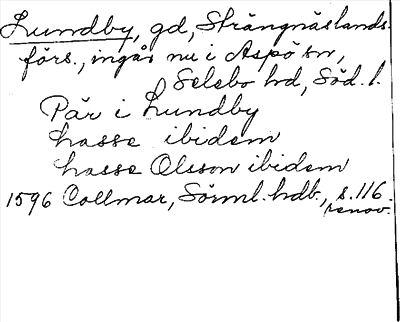 Lundby, gd, Strängnäs lands-
förs., ingår nu i Aspö sn,
Selebo hd, Söd. l.
Pär i Lundby
hasse ibidem
hasse Olsson ibidem
1596 Collmar, Sörml. hdb., s. 116.
renov.